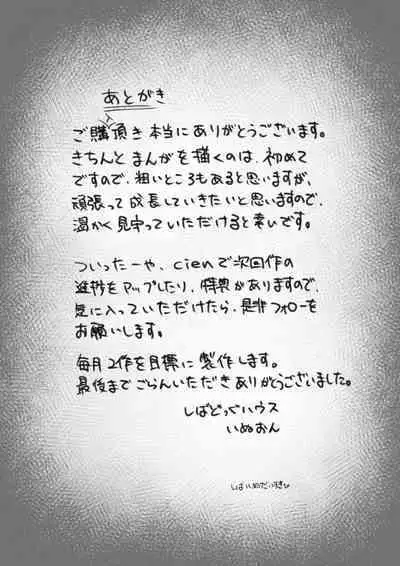 あとがき
ご購入頂き本当にありがとうございます。
きちんとまんがを描くのは、初めて
ですので、粗いところもあると思いますが、
頑張って成長していきたいと思いますので、
温かく見守っていただけると幸いです。
ついったーや、cienで次回作の
進捗をアップしたり、特典がありますので、
気に入っていただけたら、是非フォローを
お願いします。
毎月2作を目標に製作します。
最後までごらんいただきありがとうございました。
しばどっぐハウス
いぬおん